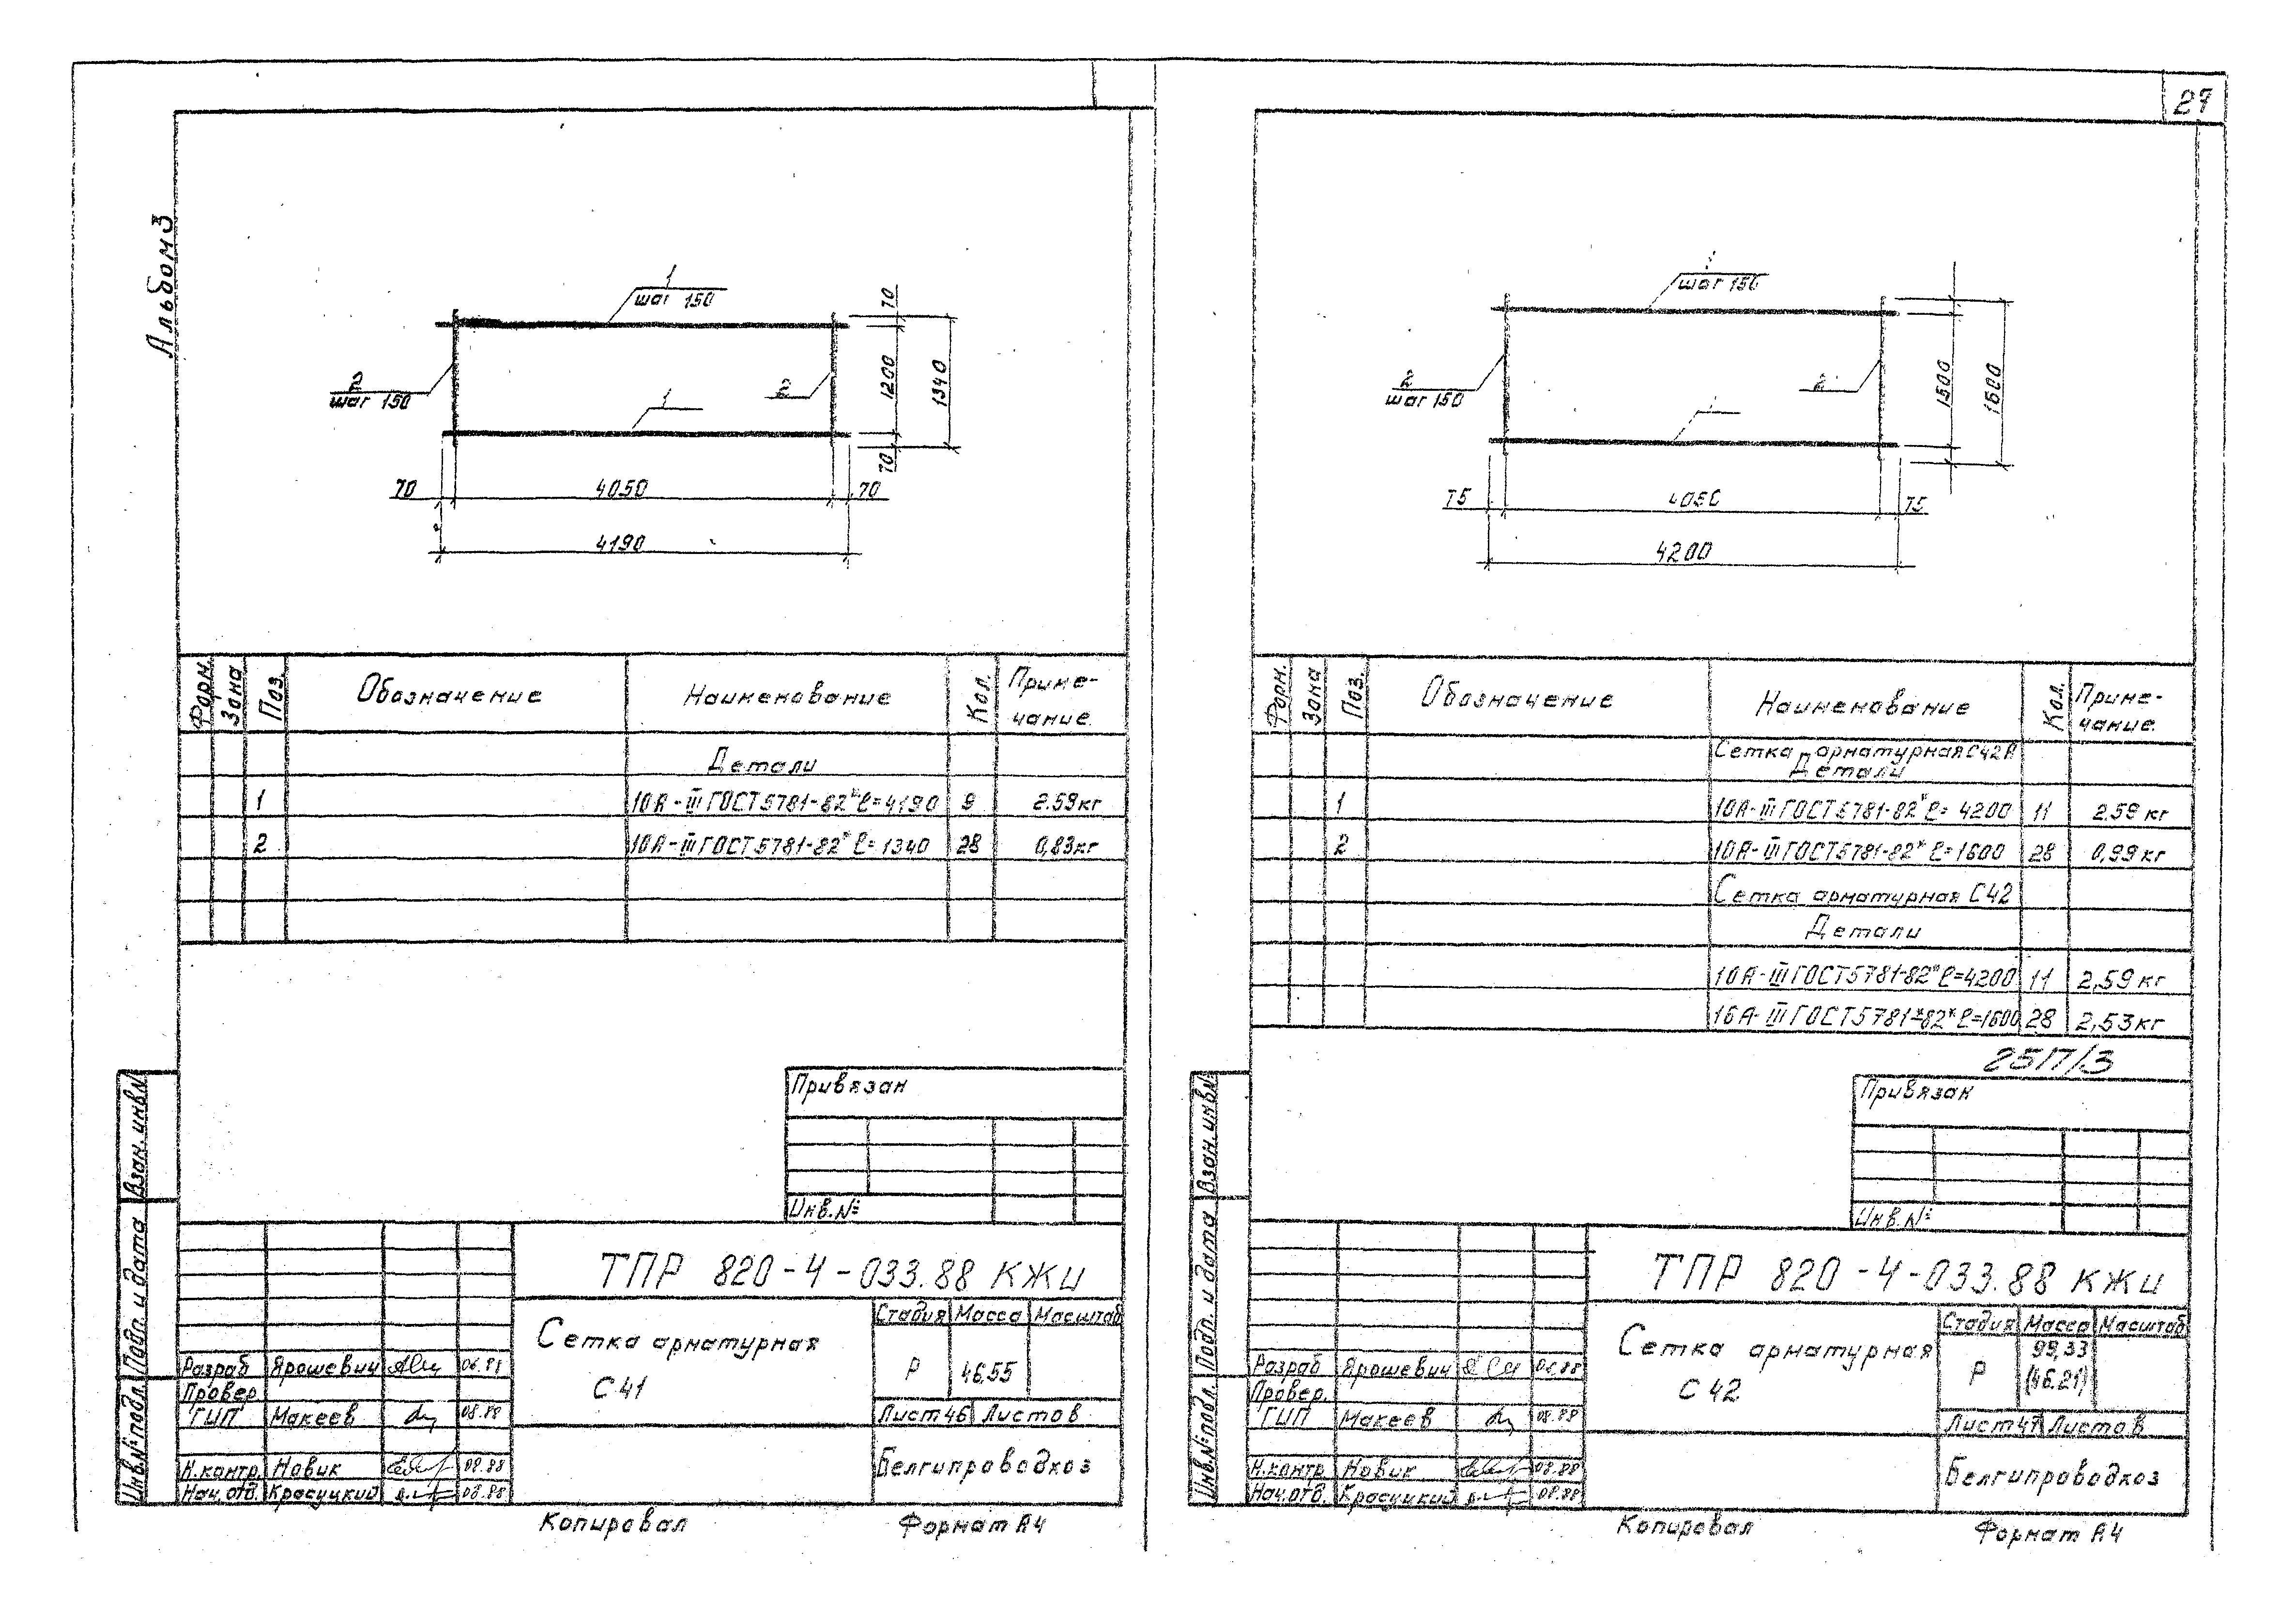 27
Альбом 3
1
шаг 150
2
шаг 150
1
2
70
1200
70
1340
70
4050
70
4190
Форм.
Зона
Поз.
Обозначение
Наименование
Кол.
Приме-
чание.
Детали
1 10А-III ГОСТ5781-82* ℓ=4190 9 2.59кг
2 10А-III ГОСТ5781-82* ℓ=1340 28 0,83кг
Привязан
Инв.№
Взам. инв.№
Подп. и дата
Инв.№ подл.
ТПР 820-4-033.88 КЖИ
Сетка арматурная
С 41
Стадия Масса Масштаб
Р 46.55
Лист 46 Листов
Белгипроводхоз
Разраб Ярошевич
Провер.
ГИП Макеев 08.88
Н.контр. Новик 08.88
Нач.отд. Красуцкий 08.88
Копировал
Формат А4
шаг 150
2
шаг 150
2
1500
1600
75
4050
75
4200
Форм.
Зона
Поз.
Обозначение
Наименование
Кол.
Приме-
чание.
Сетка арматурная С42А
Детали
1 10А-III ГОСТ5781-82* ℓ=4200 11 2.59 кг
2 10А-III ГОСТ5781-82* ℓ=1600 28 0,99 кг
Сетка арматурная С42
Детали
10А-III ГОСТ5781-82* ℓ=4200 11 2,59 кг
16А-III ГОСТ5781-82* ℓ=1600 28 2,53 кг
Привязан
Инв.№
Взам. инв.№
Подп. и дата
Инв.№ подл.
ТПР 820-4-033.88 КЖИ
Сетка арматурная
С 42
Стадия Масса Масштаб
Р 99,33
(46.21)
Лист 47 Листов
Белгипроводхоз
Разраб Ярошевич 06.88
Провер.
ГИП Макеев 08.88
Н.контр Новик 08.88
Нач.отд. Красуцкий 08.88
Копировал
Формат А4